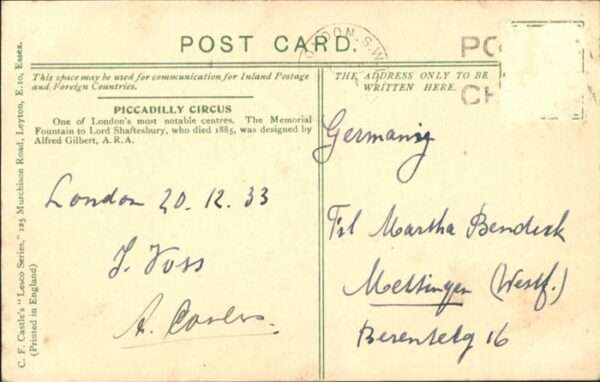 POST CARD.
LONDON. S.W.
PO
CH
This space may be used for communication for Inland Postage
and Foreign Countries.
THE ADDRESS ONLY TO BE
WRITTEN HERE.
PICCADILLY CIRCUS
One of London's most notable centres. The Memorial
Fountain to Lord Shaftesbury, who died 1885, was designed by
Alfred Gilbert, A.R.A.
London 20.12.33
J. Voss
A.
Germany
Frl Martha
Mettingen (Westf.)
16
C. F. Castle's "Lesco Series," 125 Murchison Road, Leyton, E.10, Essex.
(Printed in England)